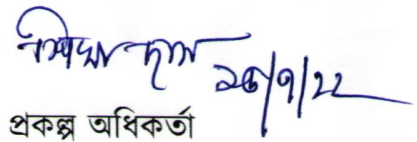 দাস ২৬/৭/২২
প্রকল্প অধিকর্তা